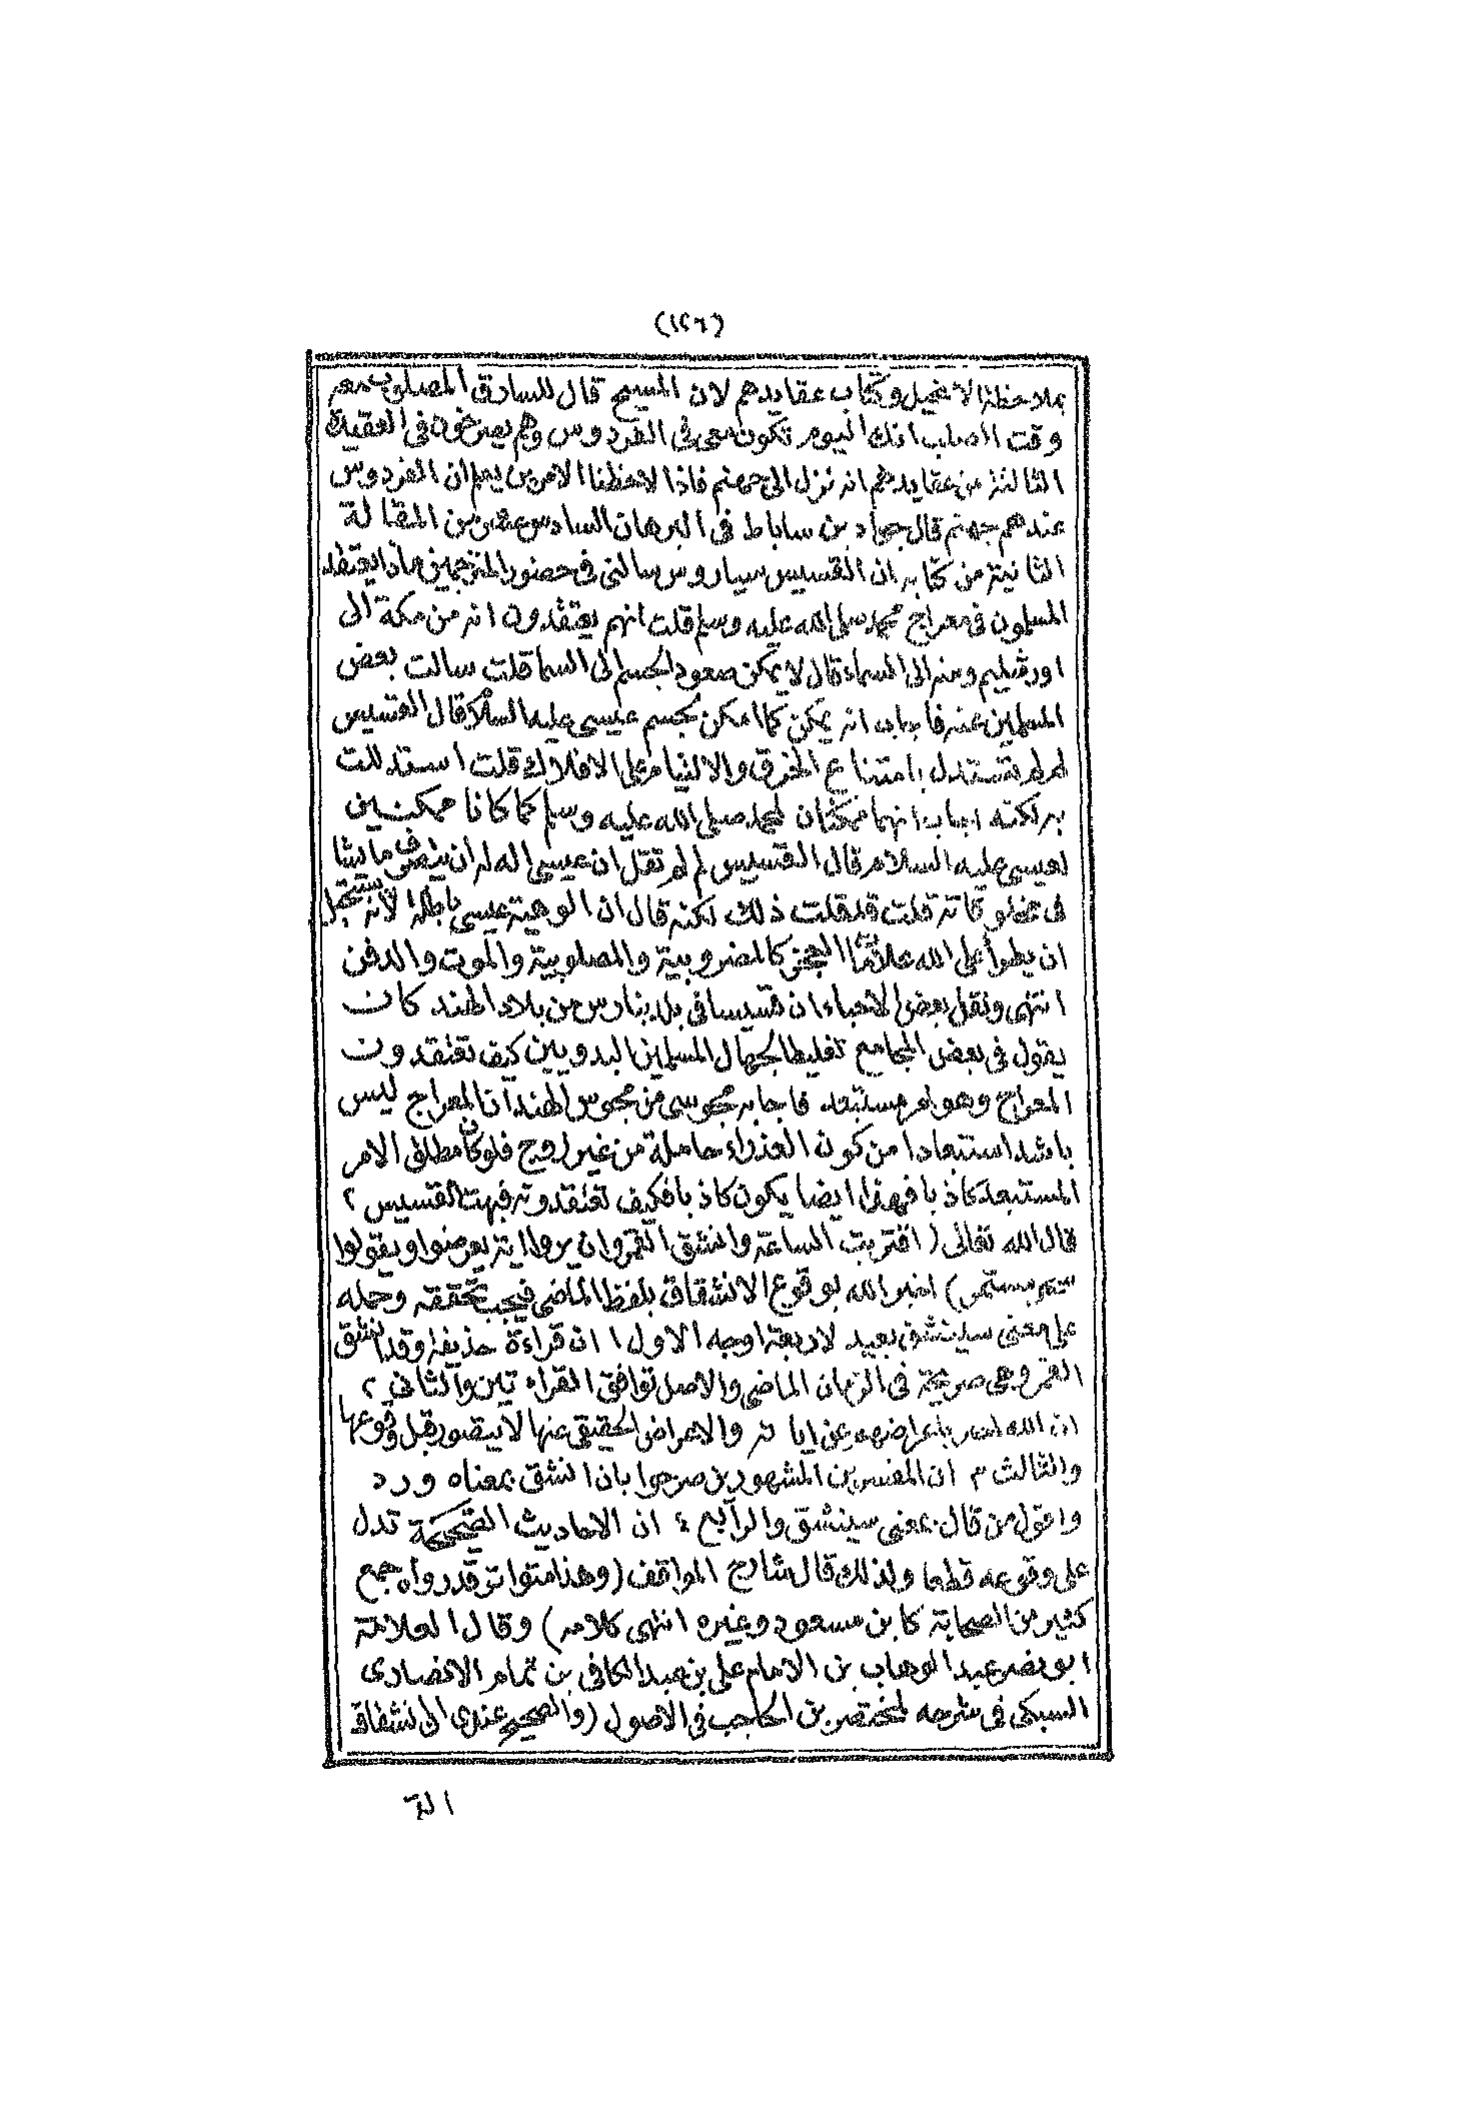 (١٤٦)
بملاحظة الانجيل وكتاب عقايدهم لان المسيح قال للسارق المصلوب معه
وقت الصلب انك اليوم تكون معى فى الفردوس وهم يصرحون فى العقيدة
الثالثة من عقايدهم انه نزل الى جهنم فاذا لاحظنا الامرين يعلم ان الفردوس
عندهم جهنم قال جواد بن ساباط فى البرهان السادس عشر من المقالة
الثانية من كتابه ان القسيس كياروس سالنى فى حضور المترجمين ماذا يعتقد
المسلمون فى معراج محمد صلى الله عليه وسلم قلت انهم يعتقدون انه من مكة الى
اورشليم ومنه الى السماء قال لا يمكن صعود الجسم الى السما قلت سالت بعض
المسلمين عنه فاجاب انه يمكن كما امكن لجسم عيسى عليه السلام قال القسيس
لم لم تستدل بامتناع الخرق والالتيام على الافلاك قلت استدللت
به لكنه اجاب انهما ممكنان لمحمد صلى الله عليه وسلم كما كانا ممكنين
لعيسى عليه السلام قال القسيس لم لم تقل ان عيسى اله له ان يتصرف ما يشا
فى مخلوقاته قلت قد قلت ذلك لكنه قال ان الوهية عيسى باطلة لانه يستحيل
ان يطرأ على الله علامات العجز كالمضروبية والمصلوبية والموت والدفن
انتهى ونقل بعض الاحباء ان قسيسا فى بلد بنارس من بلاد الهند كان
يقول فى بعض المجامع تغليطا لجهال المسلمين البدويين كيف تعتقدون
المعراج وهو امر مستبعد فاجابه مجوسى من مجوس الهند ان المعراج ليس
باشد استبعادا من كون العذراء حاملة من غير زوج فلو كان مطلق الامر
المستبعد كاذبا فهذا ايضا يكون كاذبا فكيف تعتقدونه فبهت القسيس ٢
قال الله تعالى (اقتربت الساعة وانشق القمر وان يروا اية يعرضوا ويقولوا
سحر مستمر) اخبر الله بوقوع الانشقاق بلفظ الماضى فيجب تحققه وحمله
على معنى سينشق بعيد لاربعة اوجه الاول ١ ان قراءة حذيفة وقد انشق
القمر وهى صريحة فى الزمان الماضى والاصل توافق القراءتين والثانى ٢
ان الله اخبر باعراضهم عن اياته والاعراض الحقيقى عنها لا يتصور قبل وقوعها
والثالث ٣ ان المفسرين المشهورين صرحوا بان انشق بمعناه ورد
واقول من قال بمعنى سينشق والرابع ٤ ان الاحاديث الصحيحة تدل
على وقوعه قطعا ولذلك قال شارح المواقف (وهذا متواتر قد رواه جمع
كثير من الصحابة كابن مسعود وغيره انتهى كلامه) وقال العلامة
ابو نصر عبد الوهاب بن الامام على بن عبد الكافى بن تمام الانصارى
السبكى فى شرحه لمختصر بن الحاجب فى الاصول (والصحيح عندى ان انشقاق